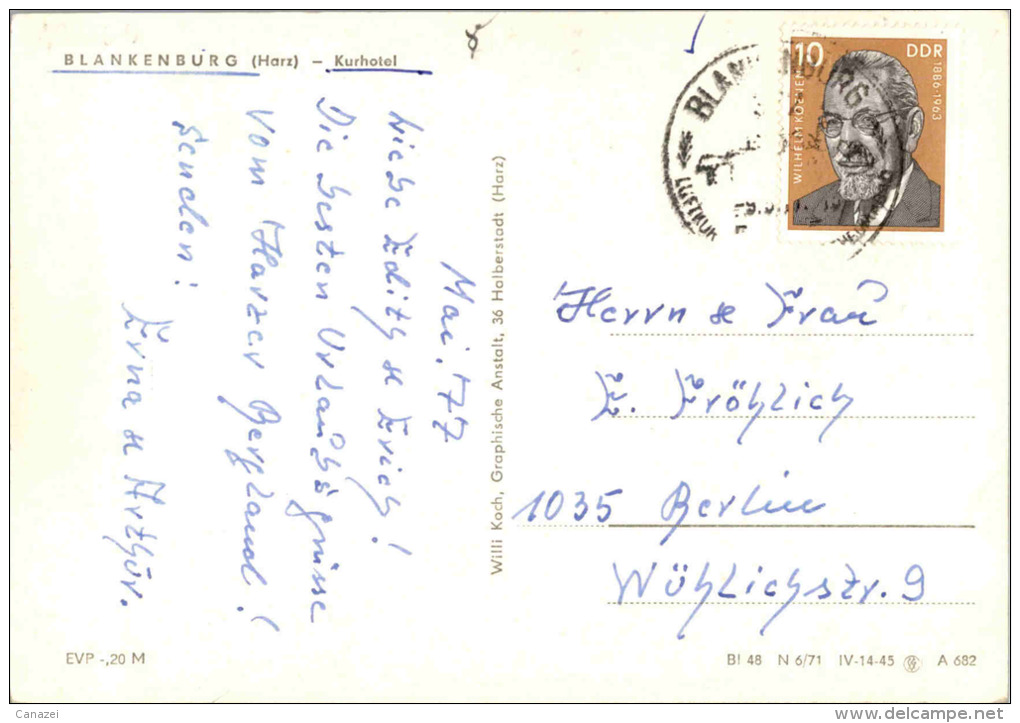 BLANKENBURG (Harz) – Kurhotel
Mai. 77
Liebe Edith & Erich!
Die besten Urlaubsgrüsse
vom Harzer Bergland!
senden:
Erna & Arthur.
Willi Koch, Graphische Anstalt, 36 Halberstadt (Harz)
10 DDR
WILHELM KOENEN
1886-1963
BLANKENBURG
LUFTKUR
Herrn & Frau
E. Fröhlich
1035 Berlin
Wühlischstr. 9
EVP -,20 M
BI 48 N 6/71 IV-14-45 A 682
Canazei
www.delcampe.net